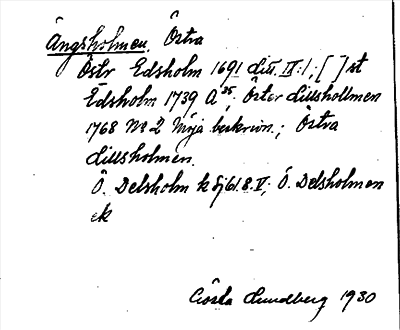 Ängsholmen, Östra
Östr Edsholm 1691 Litt. IX:1; [ ]st
Edsholm 1739 A 35; Öster Lillshollmen
1768 No 2 Möja beskrivn.; Östra
Lillsholmen.
Ö. Delsholm k Sj61 8.V; Ö. Delsholmen
ek
Gösta Lundberg 1930